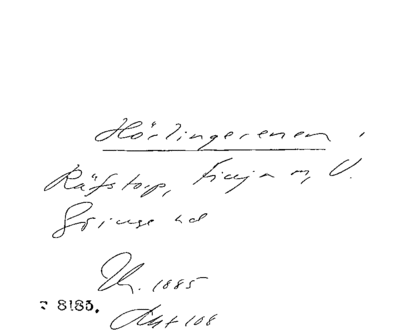 Hörlingerenen i
Räfstorp, Finja m, V.
Göinge hd
Th. 1885
Akt 108
8185.